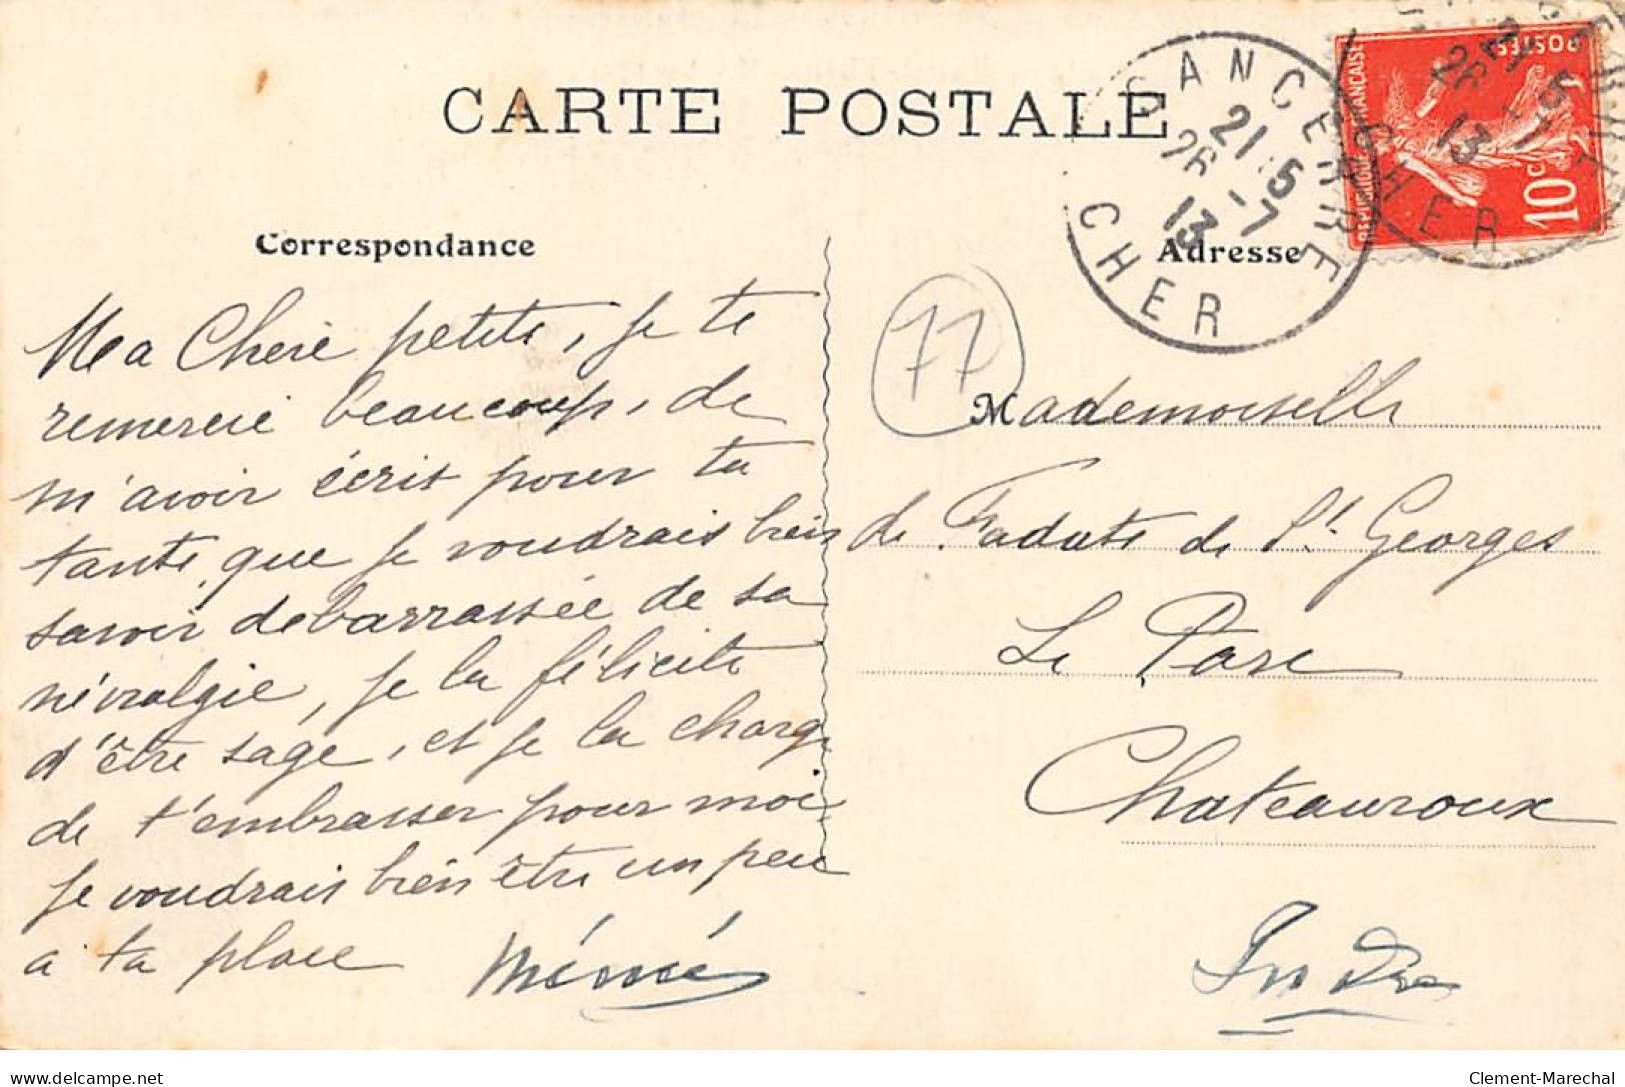 CARTE POSTALE
SANCERRE
21 15
26 - 7
13
CHER
SANCERRE
21 15
26 - 7
13
CHER
POSTES
REPUBLIQUE FRANÇAISE
10c
Correspondance
Ma Chère petite, je te
remercie beaucoup, de
m'avoir écrit pour ta
tante, que je voudrais bien
savoir debarrassée de sa
névralgie, je la félicite
d'être sage, et je la charge
de t'embrasser pour moi
je voudrais bien être un peu
a ta place Mémé
Adresse
77
Mademoiselle
de Fadate de St Georges
Le Parc
Chateauroux
Indre
delcampe.net
Clement-Marechal